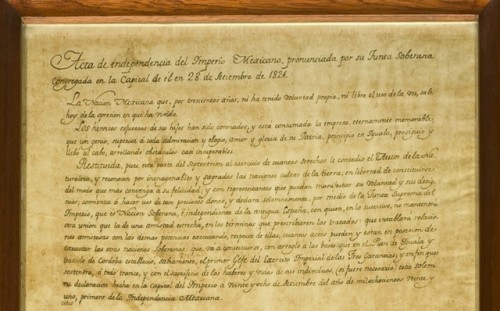 Acta de independencia del Imperio Mexicano, pronunciada por su Junta Soberana
congregada en la Capital de él en 28 de Setiembre de 1821.
La Nacion Mexicana que, por trescientos años, ni ha tenido voluntad propia, ni libre el uso de la voz, sale
hoy de la opresion en que ha vivido.
Los heroicos esfuerzos de sus hijos han sido coronados, y está consumada la empresa, eternamente memorable,
que un genio, superior á toda admiracion y elogio, amor y gloria de su Patria, principió en Iguala, prosiguió y
llevó al cabo, arrollando obstaculos casi insuperables.
Restituida, pues, esta parte del Septentrion al exercicio de cuantos derechos le concedió el Autor de la na-
turaleza, y reconocen por inenagenables y sagrados las naciones cultas de la tierra; en libertad de constituirse
del modo que mas convenga á su felicidad; y con representantes que puedan manifestar su voluntad y sus desig-
nios; comienza á hacer uso de tan preciosos dones, y declara solemnemente, por medio de la Junta Suprema del
Imperio, que es Nacion Soberana, é independiente de la antigua España, con quien, en lo sucesivo, no mantendrá
otra union que la de una amistad estrecha, en los terminos que prescribieren los tratados: que entablará relacio-
nes amistosas con las demas potencias executando, respecto de ellas, cuantos actos pueden y están en posesion de
executar las otras naciones Soberanas: que va á constituirse, con arreglo á las bases que en el Plan de Iguala y
tratado de Córdoba estableció, sabiamente, el primer Gefe del Exército Imperial de las Tres Garantías; y en fin que
sostendrá, á todo trance, y con el sacrificio de los haberes y vidas de sus individuos, (si fuere necesario) esta solem-
ne declaracion hecha en la Capital del Imperio á veinte y ocho de Setiembre del año de mil ochocientos veinte y
uno, primero de la Independencia Mexicana.